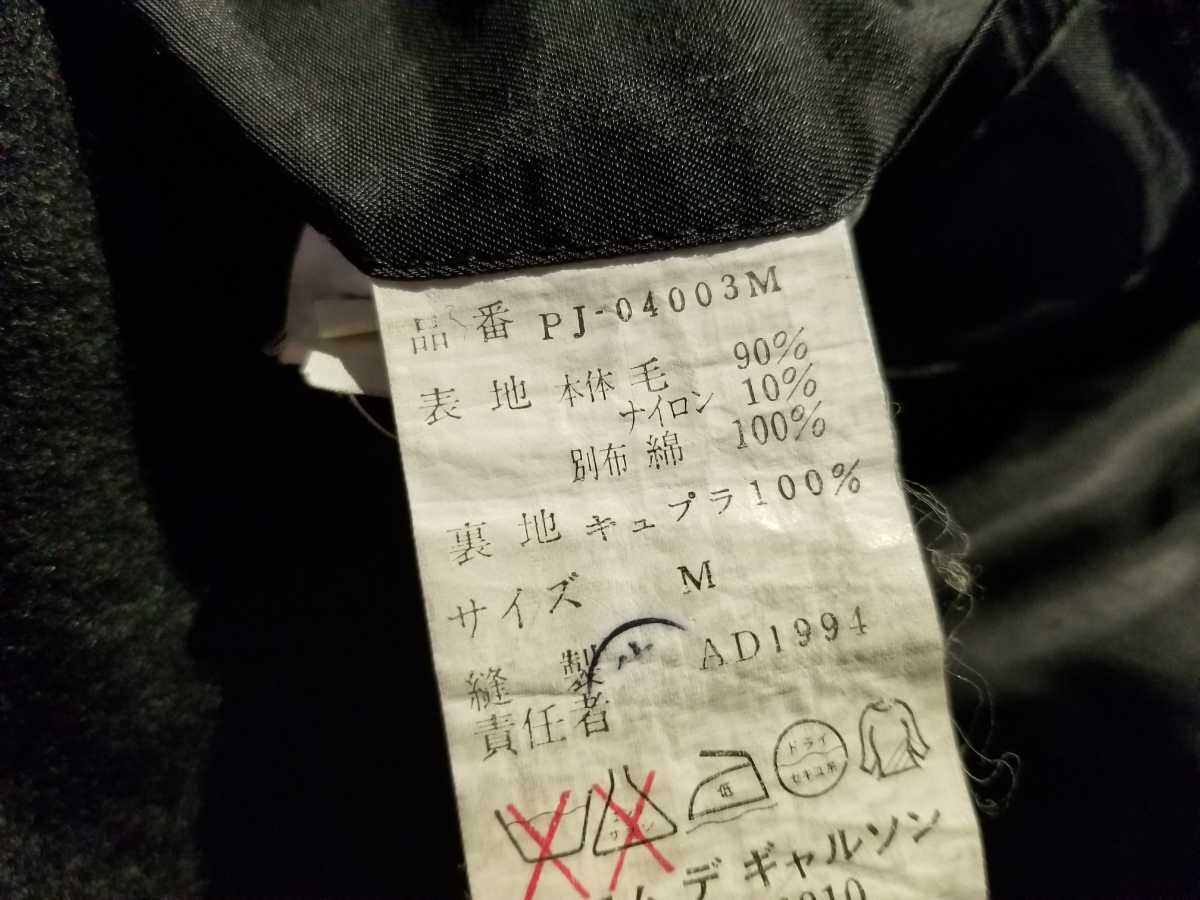 品番 PJ-04003M
表地 本体 毛 90%
ナイロン 10%
別布 綿 100%
裏地 キュプラ 100%
サイズ M
縫製 AD1994
責任者
低
ドライ
セキユ系
ムデギャルソン